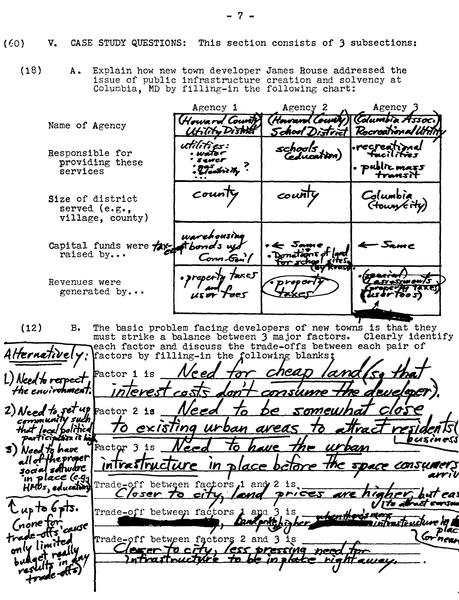 - 7 -
(60) V. CASE STUDY QUESTIONS: This section consists of 3 subsections:
(18) A. Explain how new town developer James Rouse addressed the
issue of public infrastructure creation and solvency at
Columbia, MD by filling-in the following chart:
Agency 1 Agency 2 Agency 3
Name of Agency
(Howard County
Utility District)
(Howard County
School District)
(Columbia Assoc.)
Recreational Utility
Responsible for
providing these
services
utilities:
• water
• sewer
• gas
• electricity ?
schools
(education)
• recreational
facilities
• public mass
transit
Size of district
served (e.g.,
village, county)
county
county
Columbia
(town/city)
Capital funds were
raised by...
warehousing
tax-
bonds
• ← Same
• Donations of land
for school sites
(by Rouse)
← Same
Revenues were
generated by...
• property taxes
and
user fees
• property
taxes
(special
assessments)
(property taxes)
(user fees)
(12) B. The basic problem facing developers of new towns is that they
must strike a balance between 3 major factors. Clearly identify
each factor and discuss the trade-offs between each pair of
factors by filling-in the following blanks:
Alternatively:
1) Need to respect
the environment.
2) Need to set up
community such
that local political
participation is high
3) Need to have
all of the proper
social software
in place (e.g.
HMOs, education)
↑ up to 6 pts.
(none for
trade-offs 'cause
only limited
budget really
results in any
trade-offs)
Factor 1 is Need for cheap land (so that
interest costs don't consume the developer).
Factor 2 is Need to be somewhat close
to existing urban areas to attract residents/
business
Factor 3 is Need to have the urban
infrastructure in place before the space consumers
Trade-off between factors 1 and 2 is
Closer to city, land prices are higher, but
Trade-off between factors 1 and 3 is
higher
infrastructure
Trade-off between factors 2 and 3 is
Closer to city, less pressing need for
infrastructure to be in place right away.